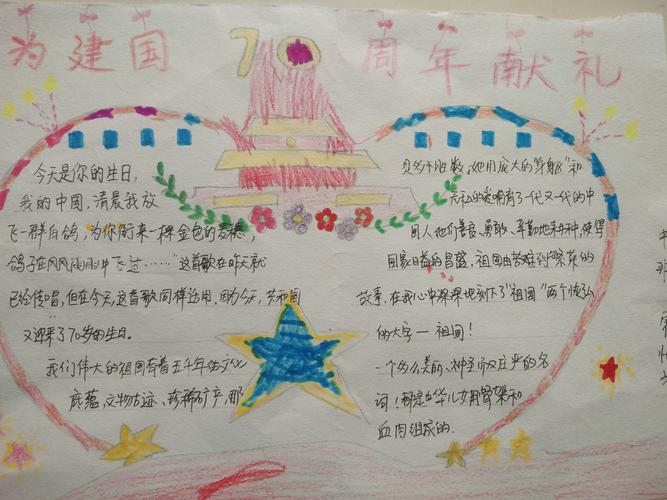 为建国70周年献礼
今天是你的生日,
我的中国,清晨我放
飞一群白鸽,为你衔来一棵金色的麦穗,
鸽子在风风雨雨中飞过……"这首歌在昨天就
已经传唱,但在今天,这首歌同样适用,因为今天,共和国
又迎来了70岁的生日。
我们伟大的祖国有着五千年的文化
底蕴,文物古迹、珍稀矿产,那
是多不胜数,她用庞大的身躯"和
无私的爱哺育了一代又一代的中
国人他们善良、勇敢、辛勤地耕种,使得
国家日益的昌盛。祖国由苦难到繁荣的
故事,在我心中深深地刻下了"祖国"两个恢弘
的大字一祖国!
一个多么美丽、神圣而又庄严的名
词!那是中华儿女用骨架和
血肉组成的.